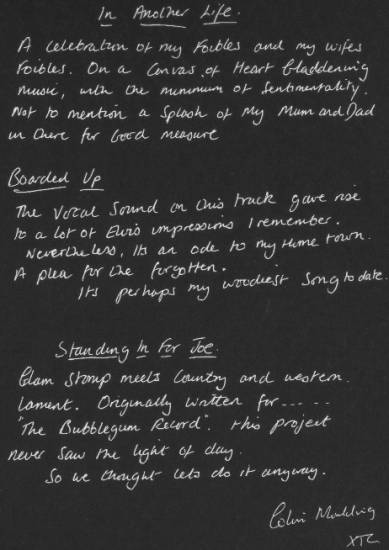 In Another Life.
A celebration of my Foibles and my wifes
Foibles. On a Canvas of Heart Gladdening
music, with the minimum of Sentimentality.
Not to mention a Splash of My Mum and Dad
in there for Good measure
Boarded Up
The Vocal Sound on this track gave rise
to a lot of Elvis impressions I remember.
Nevertheless, Its an ode to my Home town.
A plea for the forgotten.
Its perhaps my woodiest Song to date.
Standing In For Joe.
Glam Stomp meets Country and western
lament. Originally written for-----
"The Bubblegum Record". this project
never saw the light of day.
So we thought lets do it anyway.
Colin Moulding
XTC